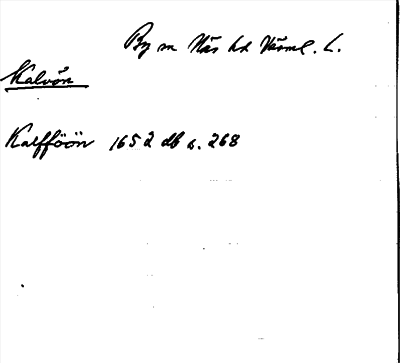 By m Näs hd Värml. L.
Kalvön
Kalfföön 1652 db s. 268